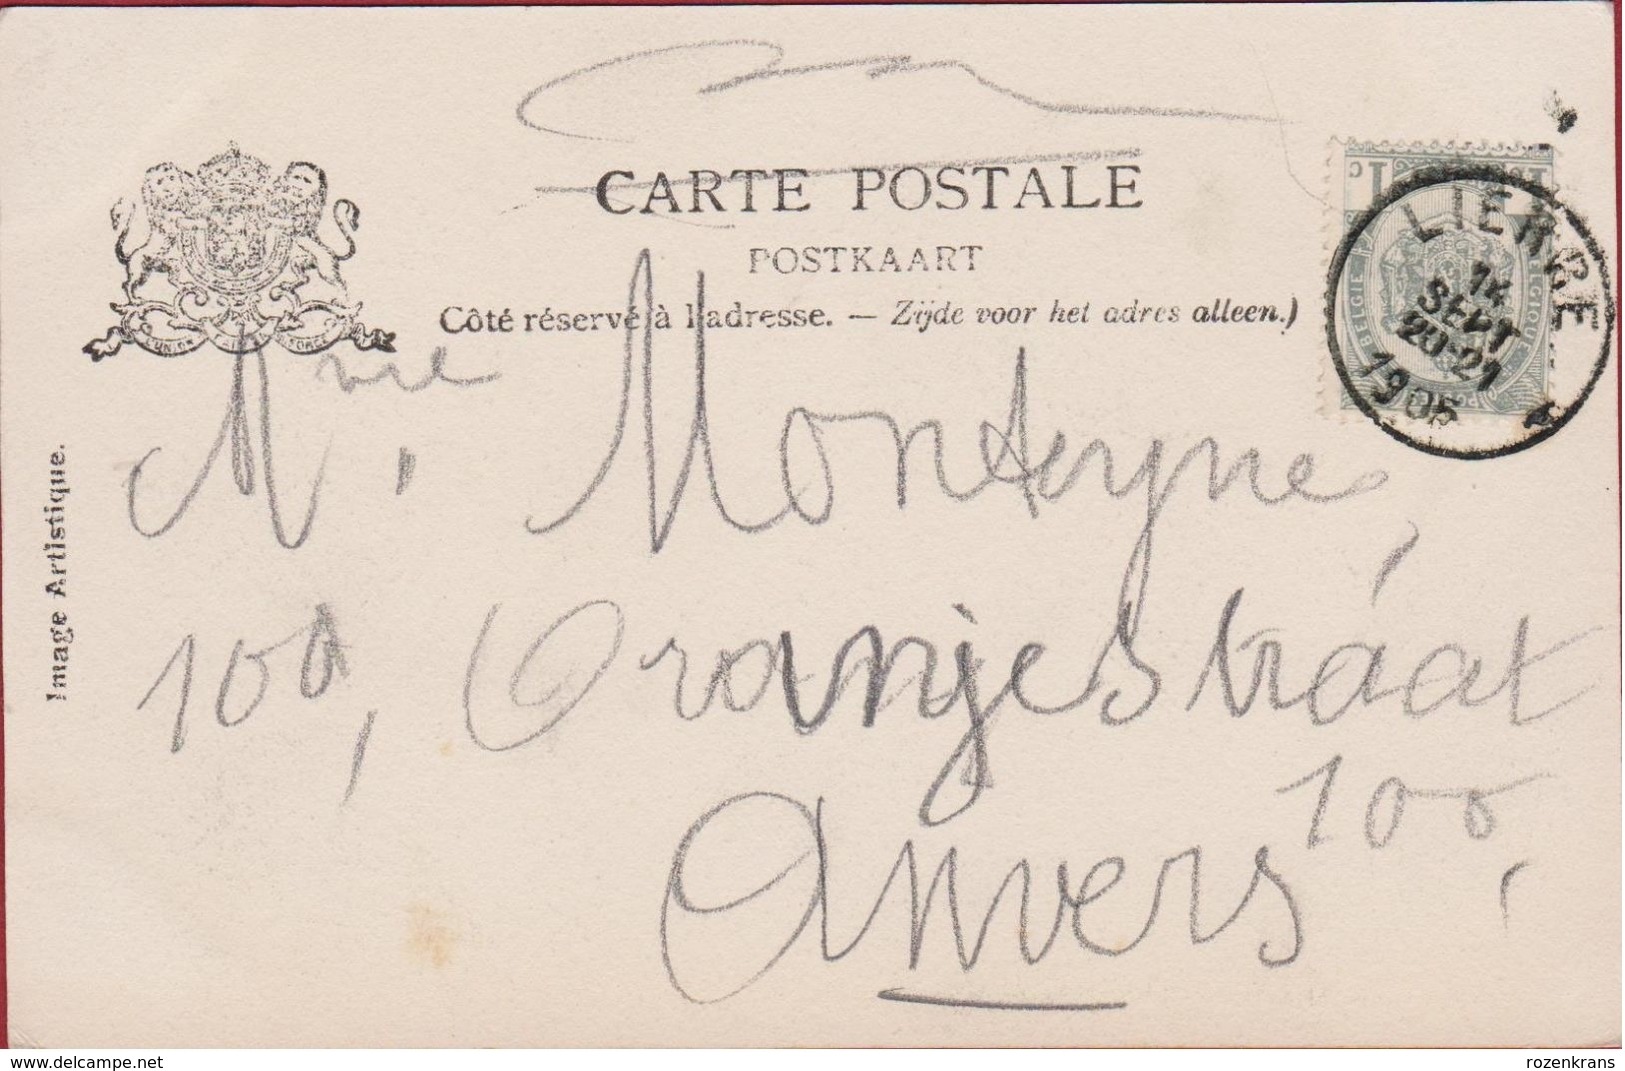 CARTE POSTALE
POSTKAART
Côté réservé à l'adresse. — Zijde voor het adres alleen.)
L'UNION FAIT LA FORCE
Image Artistique.
1 C
BELGIE
BELGIQUE
LIERRE
14
SEPT
20-21
1905
Monteyne,
100, Oranjestraat
100,
Anvers
www.delcampe.net
rozenkrans